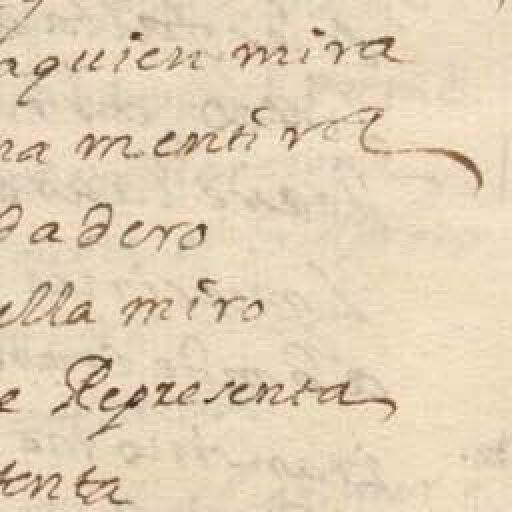 aquien mira
na mentira
dadero
ella miro
e Representa
tenta